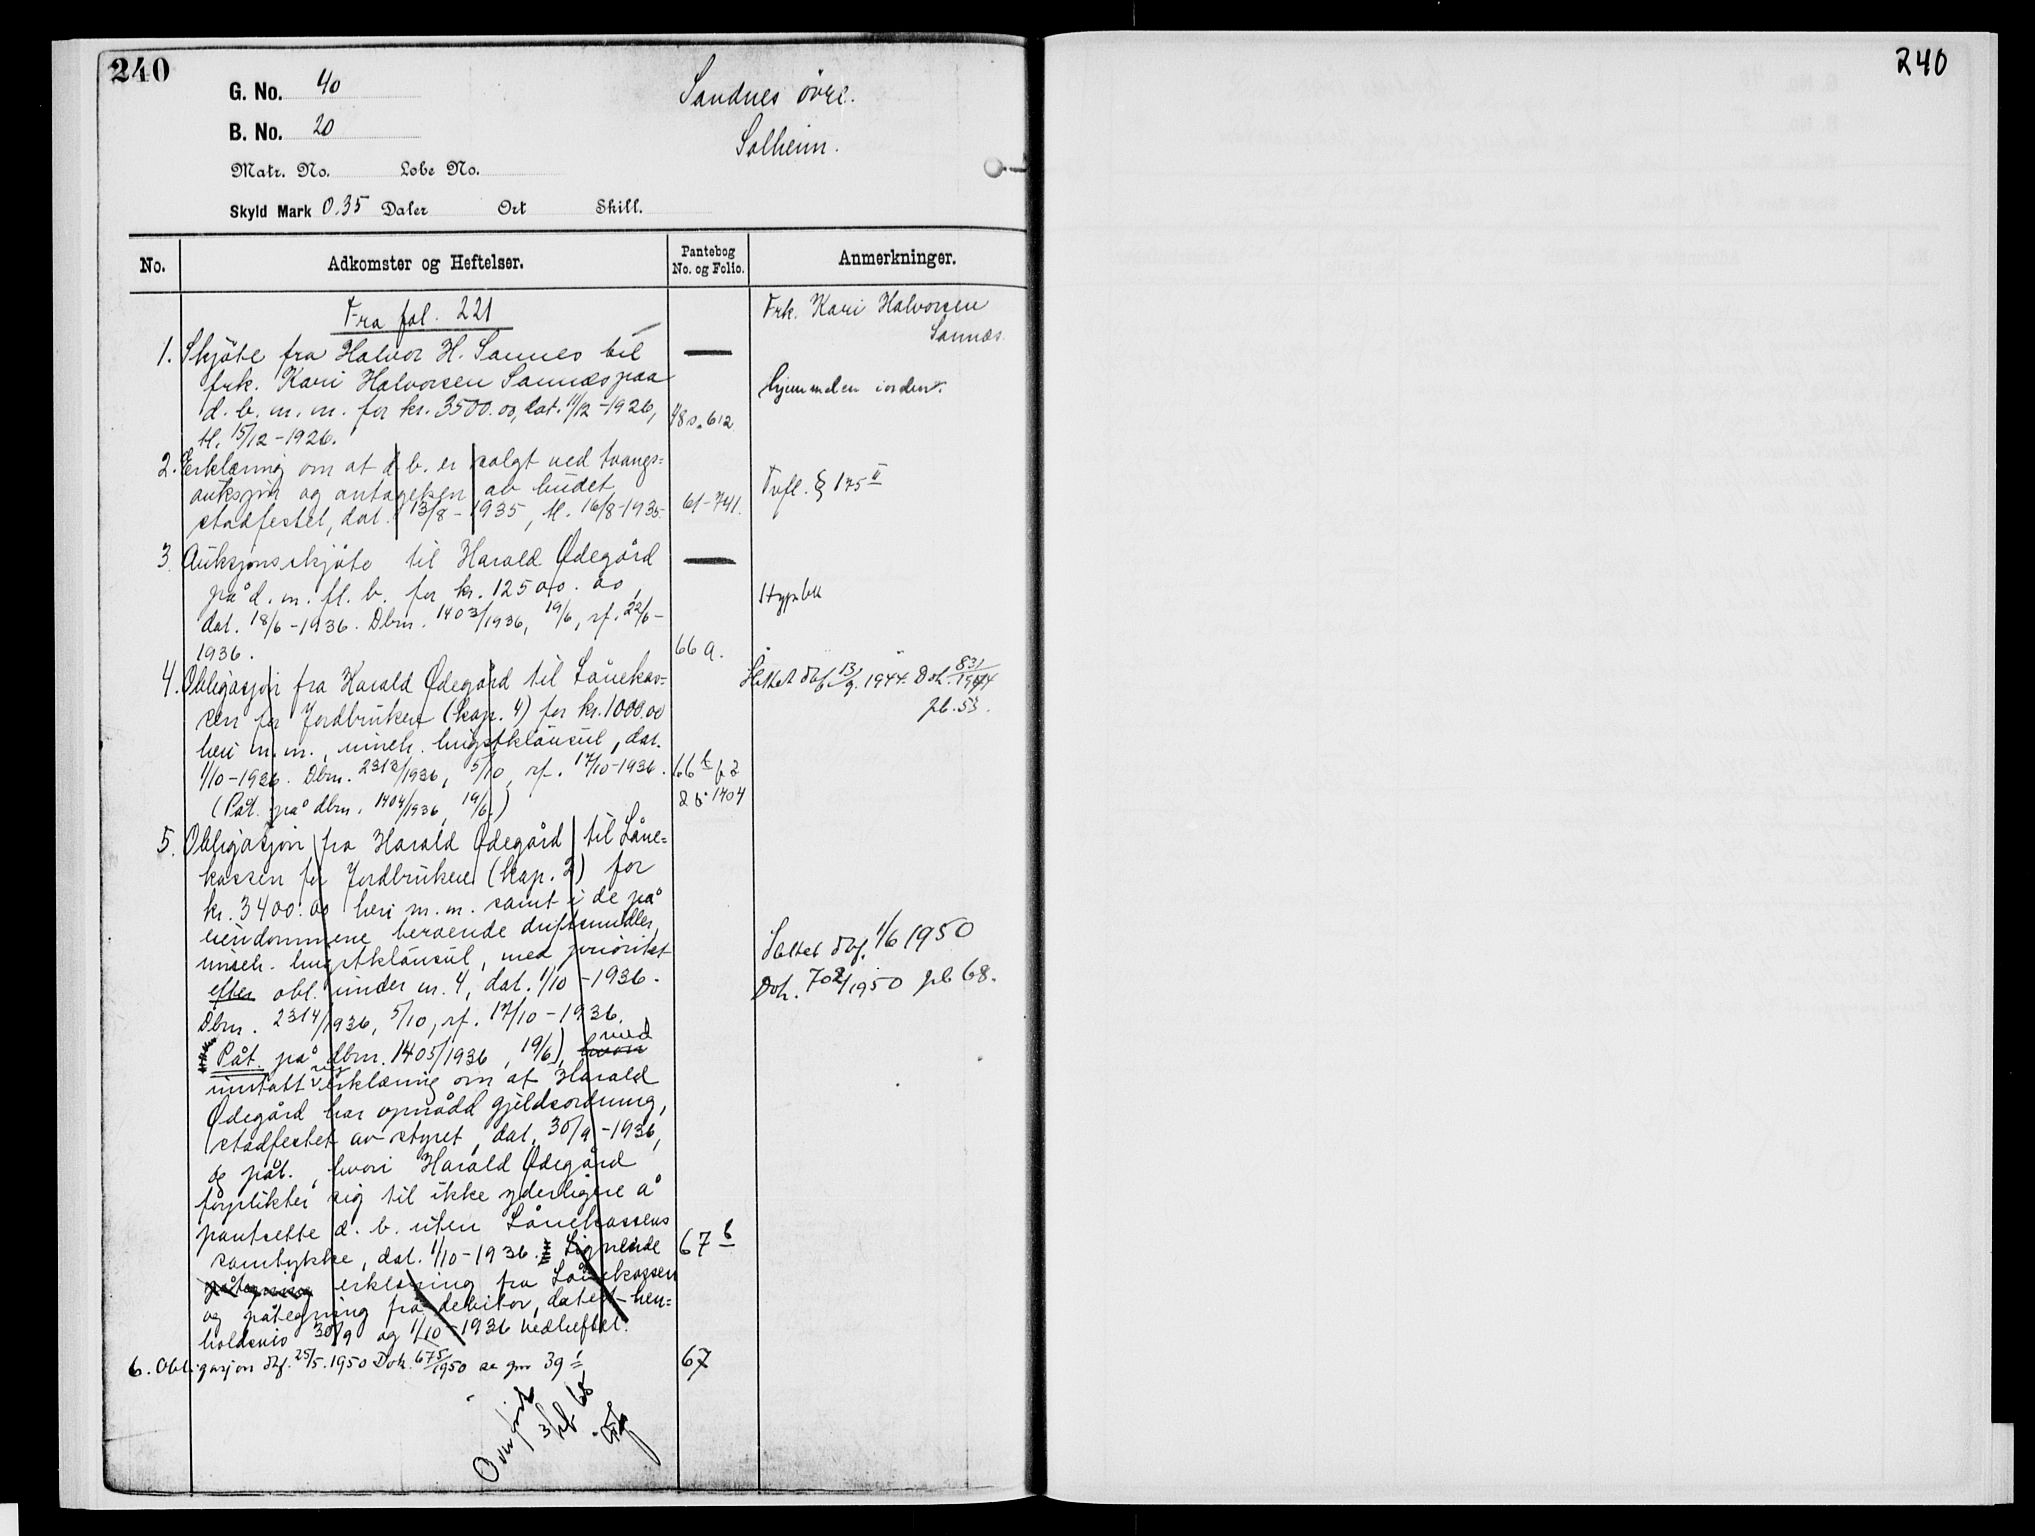 240
G. No. 40
Sandnes övre.
B. No. 20
Solheim.
Matr. No. Lobe No.
Skyld Mark 0.35 Daler Ort Skill.
No. Adkomster og Heftelser. Pantebog No. og Folio. Anmerkninger.
Fra fol. 221
Frk. Kari Halvorsen
Sannes.
1. Skjöte fra Halvor H. Sannes til
frk. Kari Halvorsen Sannes paa
hjemmelen i orden.
d. b. m. m. for kr. 3500.00, dat. 11/12-1926, 48 s. 612
tl. 15/12-1926.
2. Erklæring om at d. b. er solgt ved tvangs=
auksjon og antagelsen av budet
Tvfl. § 175 II
stadfestet, dat. 13/8-1935, tl. 16/8-1935. 61-741.
3. Auksjonsskjöte til Harald Ödegård
på d. m. fl. b. for kr. 12500.00,
dat. 18/6-1936. Dbnr. 1403/1936, 19/6, rf. 22/6-
1936. 66 a.
4. Obligasjon fra Harald Ödegård til Lånekas=
Slettet dbf. 13/9. 1944. Dok. 831/1944
sen for Jordbrukere (kap. 4) for kr. 1000.00
pb. 53.
heri m. m., inneh. hugstklausul, dat.
1/10-1936. Dbnr. 2313/1936, 5/10, rf. 17/10-1936. 66 b
(Påt. på dbnr. 1404/1936, 19/6.) 1404
5. Obligasjon fra Harald Ödegård til Låne=
kassen for Jordbrukere (kap. 2) for
kr. 3400.00 heri m. m. samt i de på
eiendommene beroende driftsmidler,
Slettet dbf. 1/6 1950
inneh. hugstklausul, med prioritet
efter obl. under nr. 4, dat. 1/10-1936.
Dok. 702/1950 pb 68.
Dbnr. 2314/1936, 5/10, rf. 17/10-1936.
Påt. på dbnr. 1405/1936, 19/6), med
inntatt erklæring om at Harald
Ödegård har opnådd gjeldsordning,
stadfestet av styret, dat. 30/9-1936,
og påt., hvori Harald Ödegård
forplikter sig til ikke yderligere å
pantsette d. b. uten Lånekassens
samtykke, dat. 1/10-1936. Lignende 67 b
påtegning erklæring fra Lånekassen
og påtegning fra debitor, datert hen=
holdsvis 30/9 og 1/10-1936 vedheftet.
6. Obligasjon dbf. 25/5.1950 Dok. 675/1950 se gnr 39 67
Overført
240